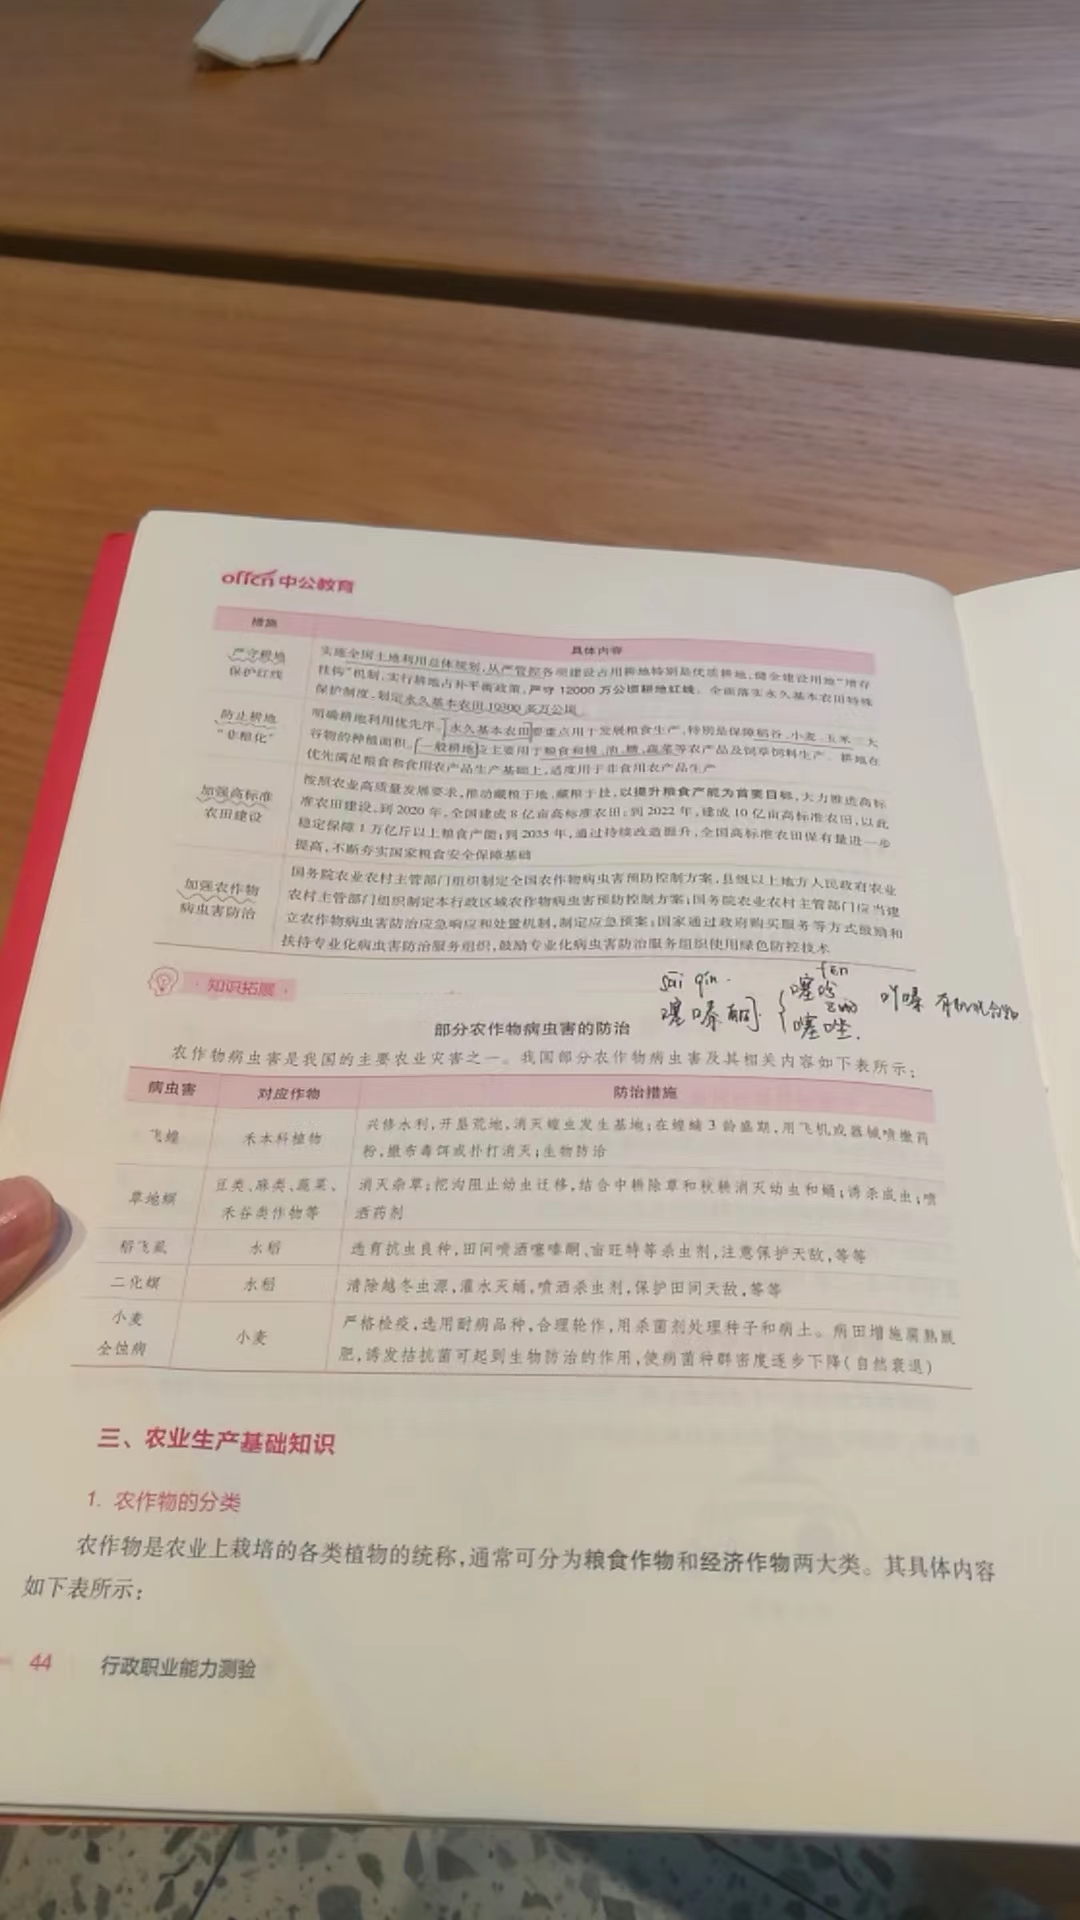 offcn中公教育
措施
具体内容
严守耕地
保护红线
实施全国土地利用总体规划,从严管控各项建设占用耕地特别是优质耕地,健全建设用地“增存
挂钩”机制,实行耕地占补平衡政策,严守12000万公顷耕地红线。全面落实永久基本农田特殊
保护制度,划定永久基本农田10300多万公顷
防止耕地
“非粮化”
明确耕地利用优先序。永久基本农田要重点用于发展粮食生产,特别是保障稻谷、小麦、玉米三大
谷物的种植面积。一般耕地应主要用于粮食和棉、油、糖、蔬菜等农产品及饲草饲料生产。耕地在
优先满足粮食和食用农产品生产基础上,适度用于非食用农产品生产
加强高标准
农田建设
按照农业高质量发展要求,推动藏粮于地、藏粮于技,以提升粮食产能为首要目标,大力推进高标
准农田建设,到2020年,全国建成8亿亩高标准农田;到2022年,建成10亿亩高标准农田,以此
稳定保障1万亿斤以上粮食产能;到2035年,通过持续改造提升,全国高标准农田保有量进一步
提高,不断夯实国家粮食安全保障基础
加强农作物
病虫害防治
国务院农业农村主管部门组织制定全国农作物病虫害预防控制方案,县级以上地方人民政府农业
农村主管部门组织制定本行政区域农作物病虫害预防控制方案;国务院农业农村主管部门应当建
立农作物病虫害防治应急响应和处置机制,制定应急预案;国家通过政府购买服务等方式鼓励和
扶持专业化病虫害防治服务组织,鼓励专业化病虫害防治服务组织使用绿色防控技术
知识拓展
sāi qín
噻嗪酮
fēn
噻吩
zuò
噻唑
吖嗪 有机化合物
部分农作物病虫害的防治
农作物病虫害是我国的主要农业灾害之一。我国部分农作物病虫害及其相关内容如下表所示:
病虫害
对应作物
防治措施
飞蝗
禾本科植物
兴修水利,开垦荒地,消灭蝗虫发生基地;在蝗蝻3龄盛期,用飞机或器械喷撒药
粉,撒布毒饵或扑打消灭;生物防治
草地螟
豆类、麻类、蔬菜、
禾谷类作物等
消灭杂草;挖沟阻止幼虫迁移,结合中耕除草和秋耕消灭幼虫和蛹;诱杀成虫;喷
洒药剂
稻飞虱
水稻
选育抗虫良种,田间喷洒噻嗪酮、亩旺特等杀虫剂,注意保护天敌,等等
二化螟
水稻
清除越冬虫源,灌水灭蛹,喷洒杀虫剂,保护田间天敌,等等
小麦
全蚀病
小麦
严格检疫,选用耐病品种,合理轮作,用杀菌剂处理种子和病土。病田增施腐熟厩
肥,诱发拮抗菌可起到生物防治的作用,使病菌种群密度逐步下降(自然衰退)
三、农业生产基础知识
1. 农作物的分类
农作物是农业上栽培的各类植物的统称,通常可分为粮食作物和经济作物两大类。其具体内容
如下表所示:
44
行政职业能力测验